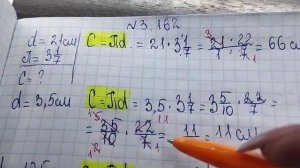 №3.162
d = 21см C = Пd = 21 · 3 1/7 = 21 · 22 / 1 · 7 = 66 см
П = 3 1/7
C = ?
d = 3,5см C = Пd = 3,5 · 3 1/7 = 3 5/10 · 22/7 =
= 35/10 · 22/7 = 11 = 11см